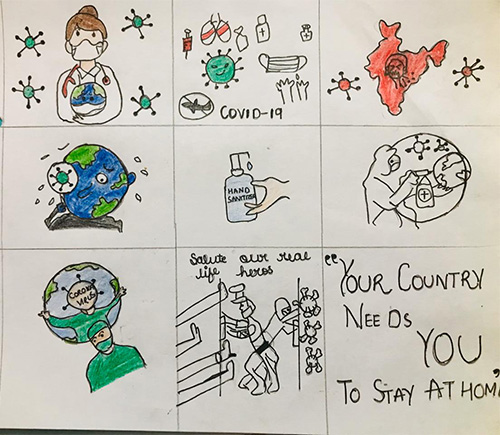 COVID-19
HAND
CORONA
VIRUS
Salute our real
life heros
"YOUR COUNTRY
NEEDS
YOU
TO STAY AT HOM